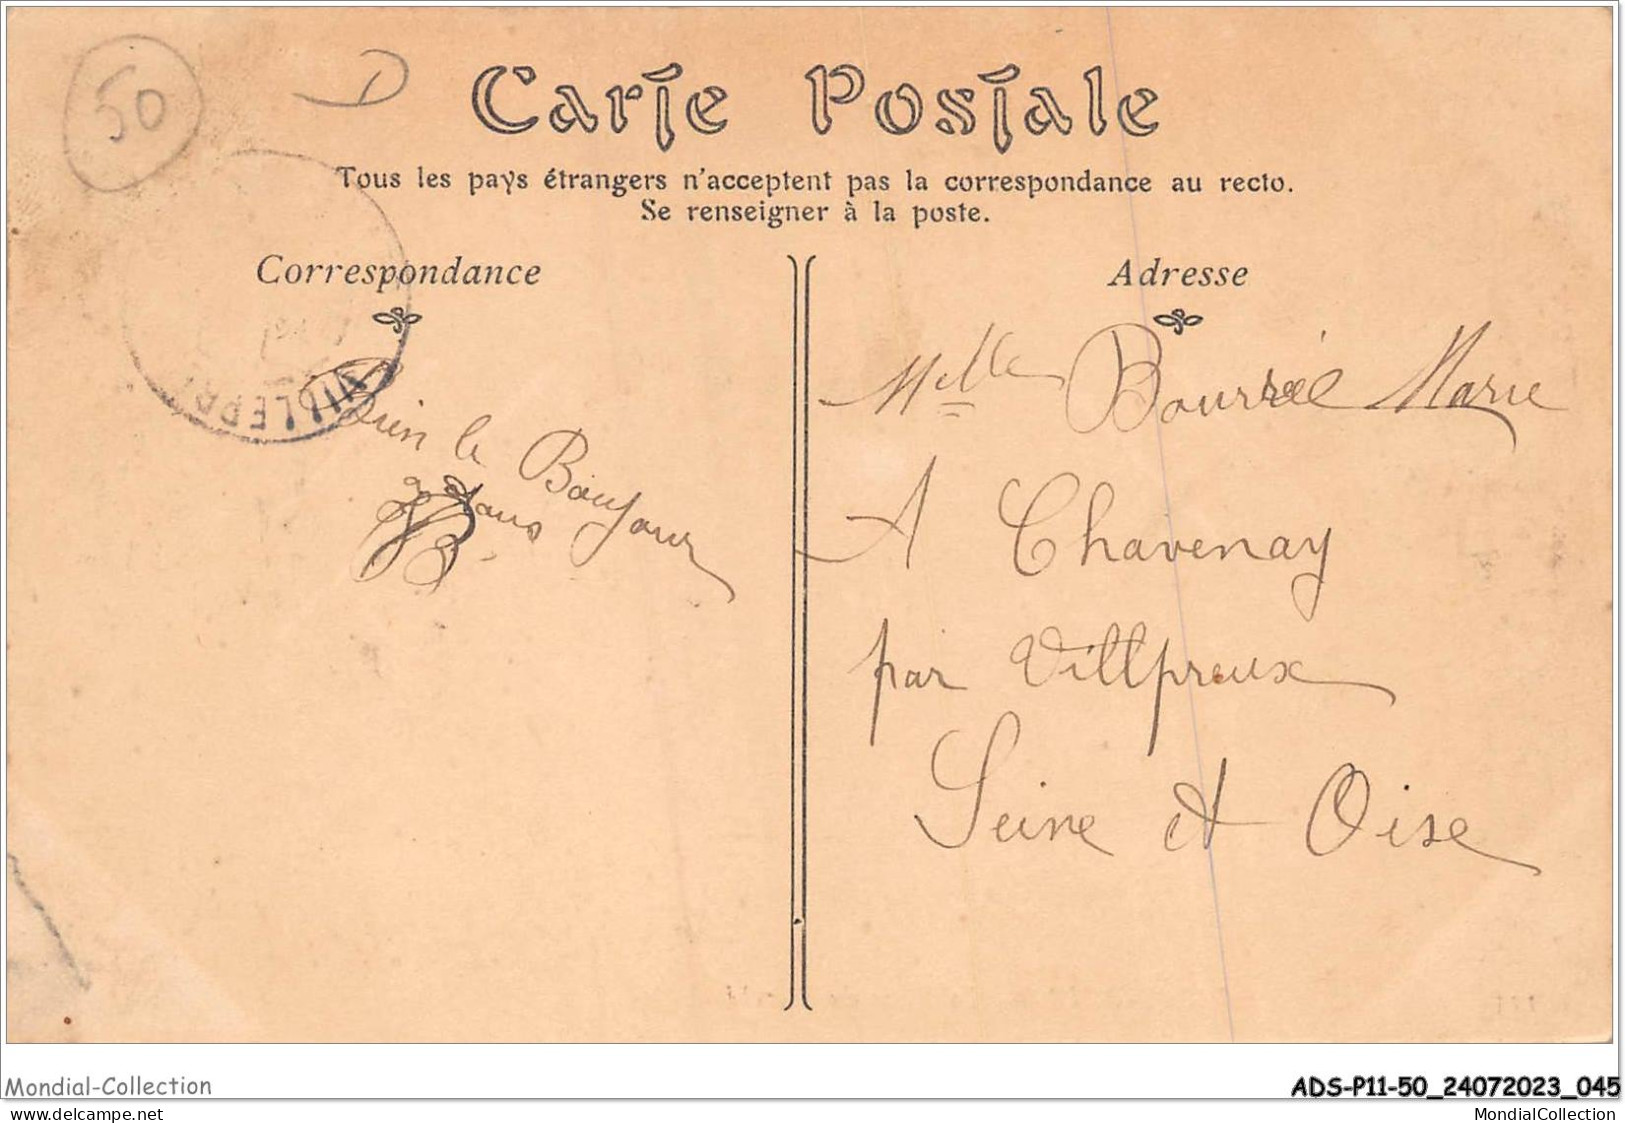 50
Carte Postale
Tous les pays étrangers n'acceptent pas la correspondance au recto.
Se renseigner à la poste.
Correspondance
Adresse
Bien le Bonjour
a tous
B.
Melle Bourrél Marie
A Chavenay
par Villpreux
Seine et Oise
Mondial-Collection
ADS-P11-50_24072023_045
www.delcampe.net
MondialCollection